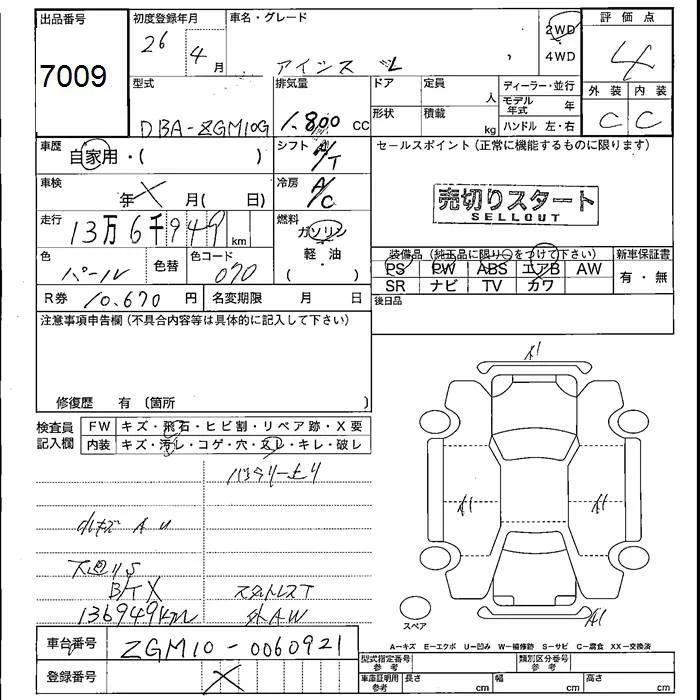 出品番号
7009
初度登録年月
26 4月
車名・グレード
アイシス L
2WD
4WD
評価点
4
外装 内装
C C
型式
DBA-ZGM10G
排気量
1.800 cc
ドア
形状
定員 人
積載 kg
ディーラー・並行
モデル年式 年
ハンドル 左・右
車歴
自家用・( )
シフト
A/T
車検
年 X 月( 日)
冷房
A/C
走行
13万6千949 km
燃料
ガソリン
軽・油
( )
色
パール
色替
色コード
070
R券 10.670 円
名変期限 月 日
セールスポイント(正常に機能するものに限ります)
売切りスタート
SELLOUT
装備品(純正品に限り○をつけて下さい)
PS PW ABS エアB AW
SR ナビ TV カワ
新車保証書
有・無
後日品
注意事項申告欄(不具合内容等は具体的に記入して下さい)
修復歴 有 〔箇所 〕
検査員記入欄
FW キズ・飛石・ヒビ割・リペア跡・X要
内装 キズ・汚レ・コゲ・穴・スレ・キレ・破レ
バッテリー上り
小キズ A U
下廻りS
136949km
スタットレスT
外AW
A1
A1
A1
スペア
A−キズ E−エクボ U−凹み W−補修跡 S−サビ C−腐食 XX−交換済
車台番号
ZGM10-0060921
登録番号
X
型式指定番号 参考
類別区分番号 参考
車庫証明用 参考
長さ cm
幅 cm
高さ cm